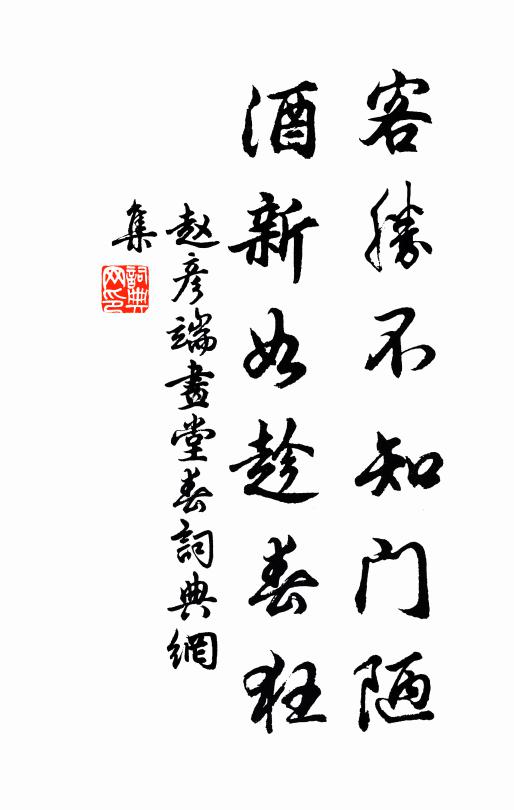 客勝不知门陋
酒新如趁春狂
赵彦端畫堂春詞典網
集
詞典
网印